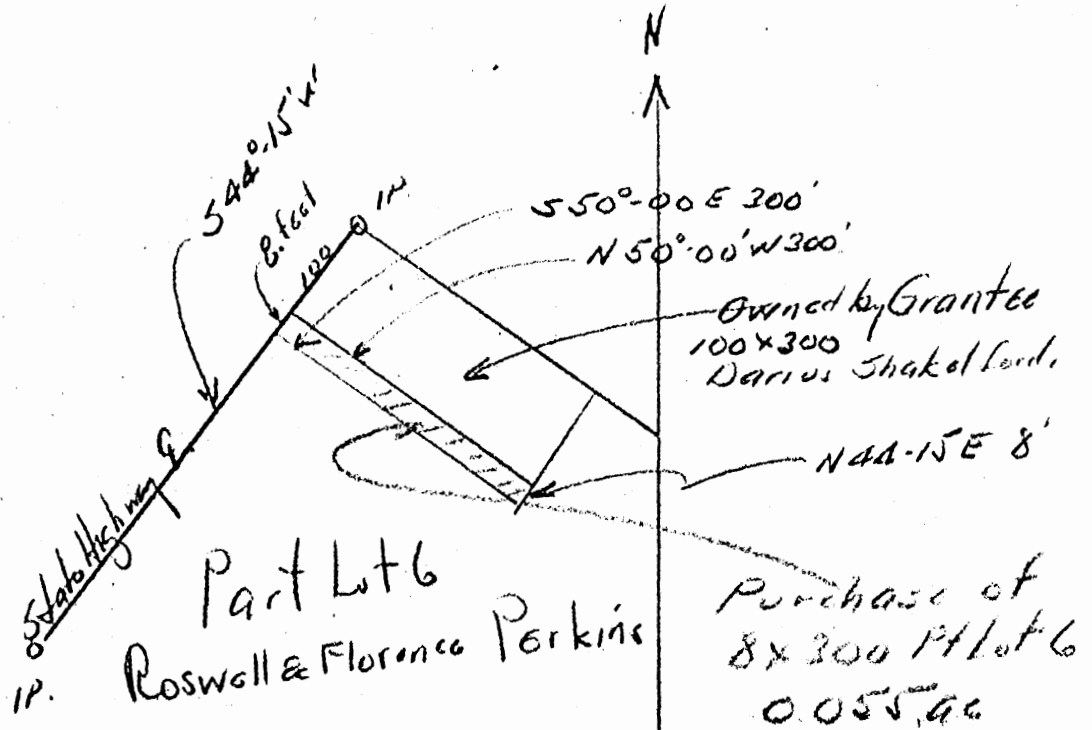 N
S 44°-15' W
8. feet
100
IP.
S 50°-00 E 300'
N 50°-00' W 300'
Owned by Grantee
100 x 300
Darius Shakelford.
N 44-15 E 8'
State Highway
IP.
Part Lot 6
Roswell & Florence Perkins
Purchase of
8 x 300 Pt Lot 6
0.055 ac